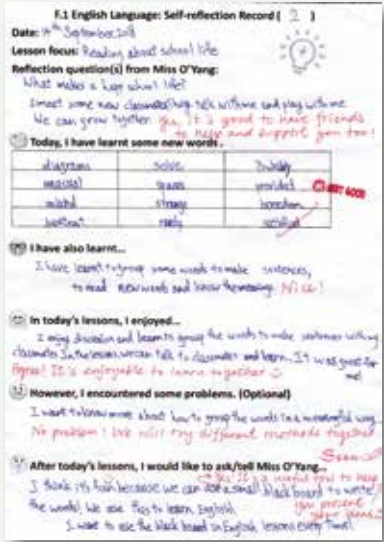 F.1 English Language: Self-reflection Record ( 2 )
Date: 14th September, 2018
Lesson focus: Reading about school life
Reflection question(s) from Miss O'Yang:
What makes a happy school life?
I meet some new classmates, talk with me and play with me.
We can grow together. Yes, it is good to have friends
to help and support you too!
Today, I have learnt some new words.
diagrams solve
spaces provided
strange boredom
rarely satisfied
I have also learnt...
I have learnt to group some words to make sentences,
to read new words and know the meaning. Nice!
In today's lessons, I enjoyed...
I enjoy discussion and learn to group the words to make sentences with my
classmates. In the lesson, we can talk to classmates and learn. It was great for
me!
Agree! It's enjoyable to learn together
However, I encountered some problems. (Optional)
I want to know more about how to group the words in a meaningful way.
No problem! We will try different methods together
Soon
After today's lessons, I would like to ask/tell Miss O'Yang...
Yes! It's a useful tool to help
I think it's fun because we can use a small black board to write
the words! We use this to learn English.
you present
your ideas
I want to use the black board in English lessons every time!